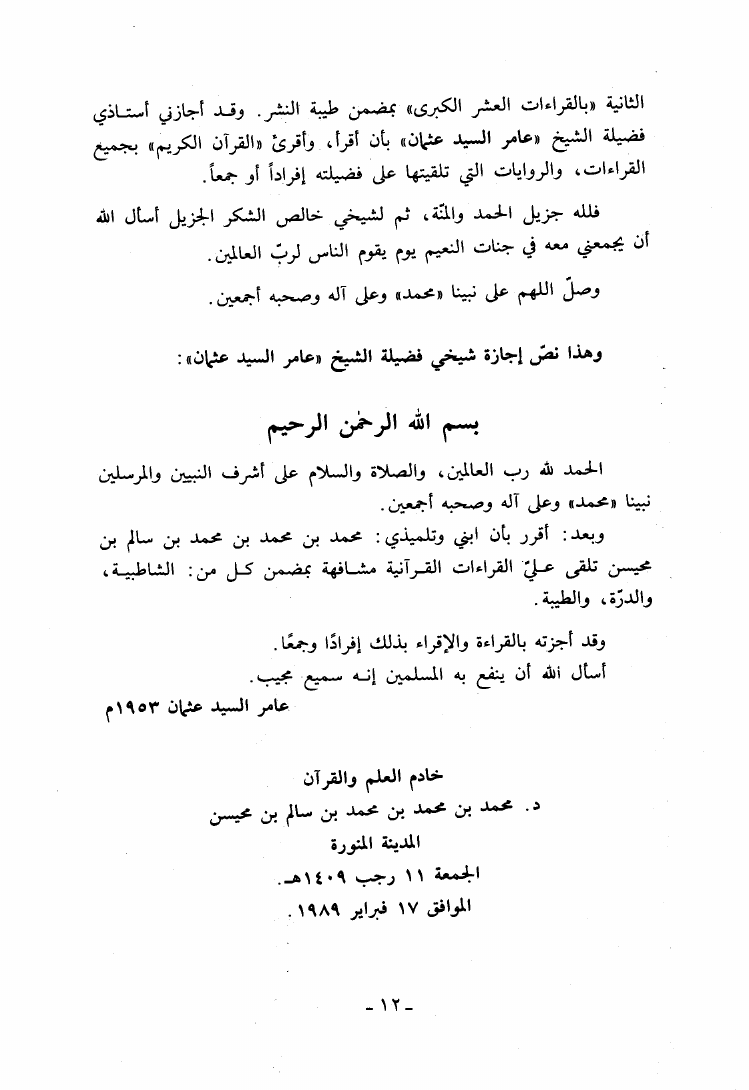 الثانية «بالقراءات العشر الكبرى» بمضمن طيبة النشر. وقد أجازني أستاذي
فضيلة الشيخ «عامر السيد عثمان» بأن أقرأ، وأقرئ «القرآن الكريم» بجميع
القراءات، والروايات التي تلقيتها على فضيلته إفراداً أو جمعاً.
فلله جزيل الحمد والمنّة، ثم لشيخي خالص الشكر الجزيل أسأل الله
أن يجمعني معه في جنات النعيم يوم يقوم الناس لربّ العالمين.
وصلّ اللهم على نبينا «محمد» وعلى آله وصحبه أجمعين.
وهذا نصّ إجازة شيخي فضيلة الشيخ «عامر السيد عثمان»:
بسم الله الرحمٰن الرحيم
الحمد لله رب العالمين، والصلاة والسلام على أشرف النبيين والمرسلين
نبينا «محمد» وعلى آله وصحبه أجمعين.
وبعد: أقرر بأن ابني وتلميذي: محمد بن محمد بن محمد بن سالم بن
محيسن تلقى عليّ القراءات القرآنية مشافهة بمضمن كل من: الشاطبية،
والدرّة، والطيبة.
وقد أجزته بالقراءة والإقراء بذلك إفرادًا وجمعًا.
أسأل الله أن ينفع به المسلمين إنه سميع مجيب.
عامر السيد عثمان ١٩٥٣م
خادم العلم والقرآن
د. محمد بن محمد بن محمد بن سالم بن محيسن
المدينة المنورة
الجمعة ١١ رجب ١٤٠٩هـ.
الموافق ١٧ فبراير ١٩٨٩.
- ١٢ -